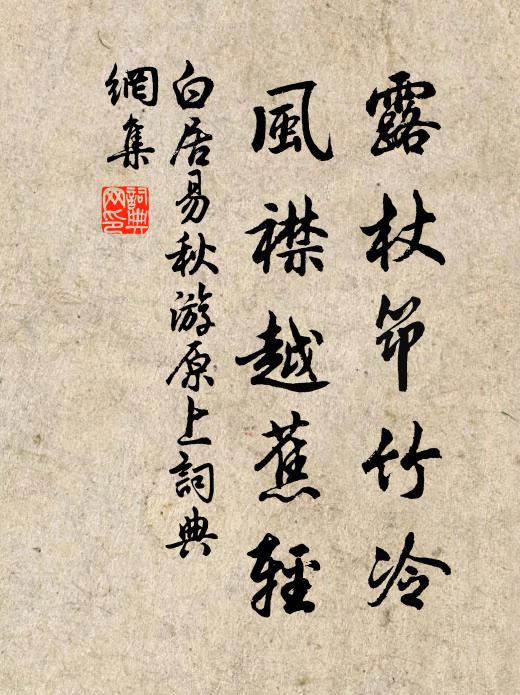 露杖筇竹冷
風襟越蕉輕
白居易秋游原上詞典
網集
詞典網印